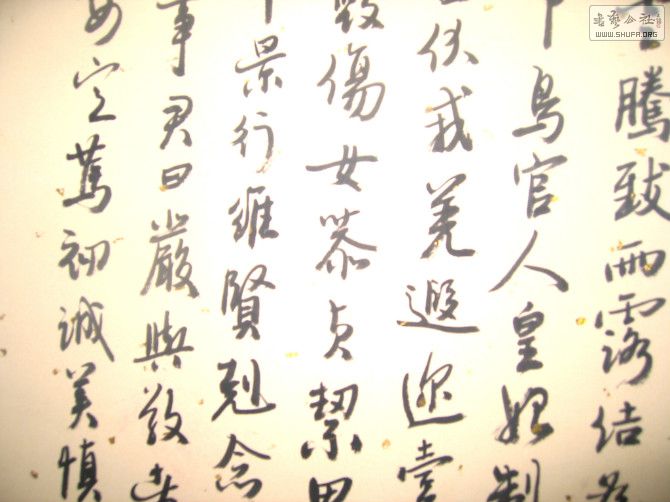 騰致雨露結為
鳥官人皇始制
伏戎羌遐迩壹
毀傷女慕貞絜男
景行維賢剋念
事君曰嚴與敬孝
安定篤初誠美慎
書藝公社
WWW.SHUFA.ORG